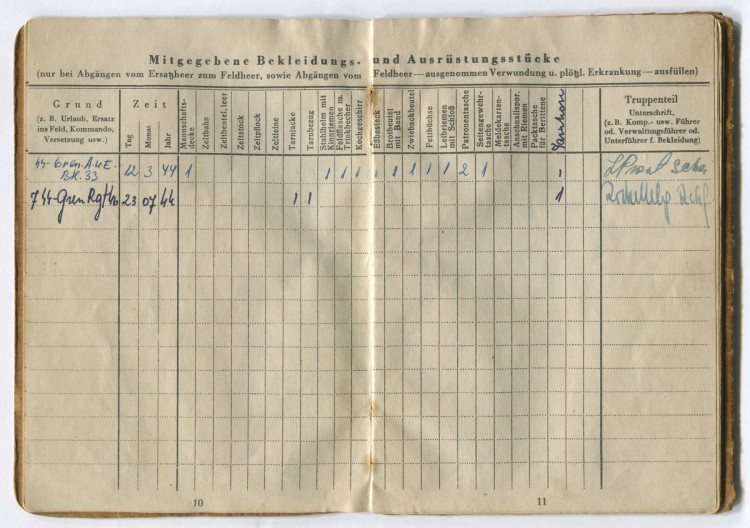 Mitgegebene Bekleidungs- und Ausrüstungsstücke
(nur bei Abgängen vom Ersatzheer zum Feldheer, sowie Abgängen vom Feldheer — ausgenommen Verwundung u. plötzl. Erkrankung — ausfüllen)
Grund
(z. B. Urlaub, Ersatz
ins Feld, Kommando,
Versetzung usw.)
Zeit
Tag
Monat
Jahr
Mannschafts-
decke
Zeltbahn
Zeltbeutel, leer
Zeltstock
Zeltpflock
Zeltleine
Tarnjacke
Tarnbezug
Stahlhelm mit
Kinnriemen
Feldflasche m.
Trinkbecher
Kochgeschirr
Eßbesteck
Brotbeutel
mit Band
Zwiebackbeutel
Fettbüchse
Leibriemen
mit Schloß
Patronentasche
Seitengewehr-
tasche
Meldekarten-
tasche
Anschnallspor.
mit Riemen
Packtasche
für Berittene
Truppenteil
Unterschrift,
(z. B. Komp.- usw. Führer
od. Verwaltungsführer od.
Unterführer f. Bekleidung)
12 3 44 1 1 1 1 1 1 1 1 1 2 1 1
23 07 44 1 1 1
10
11